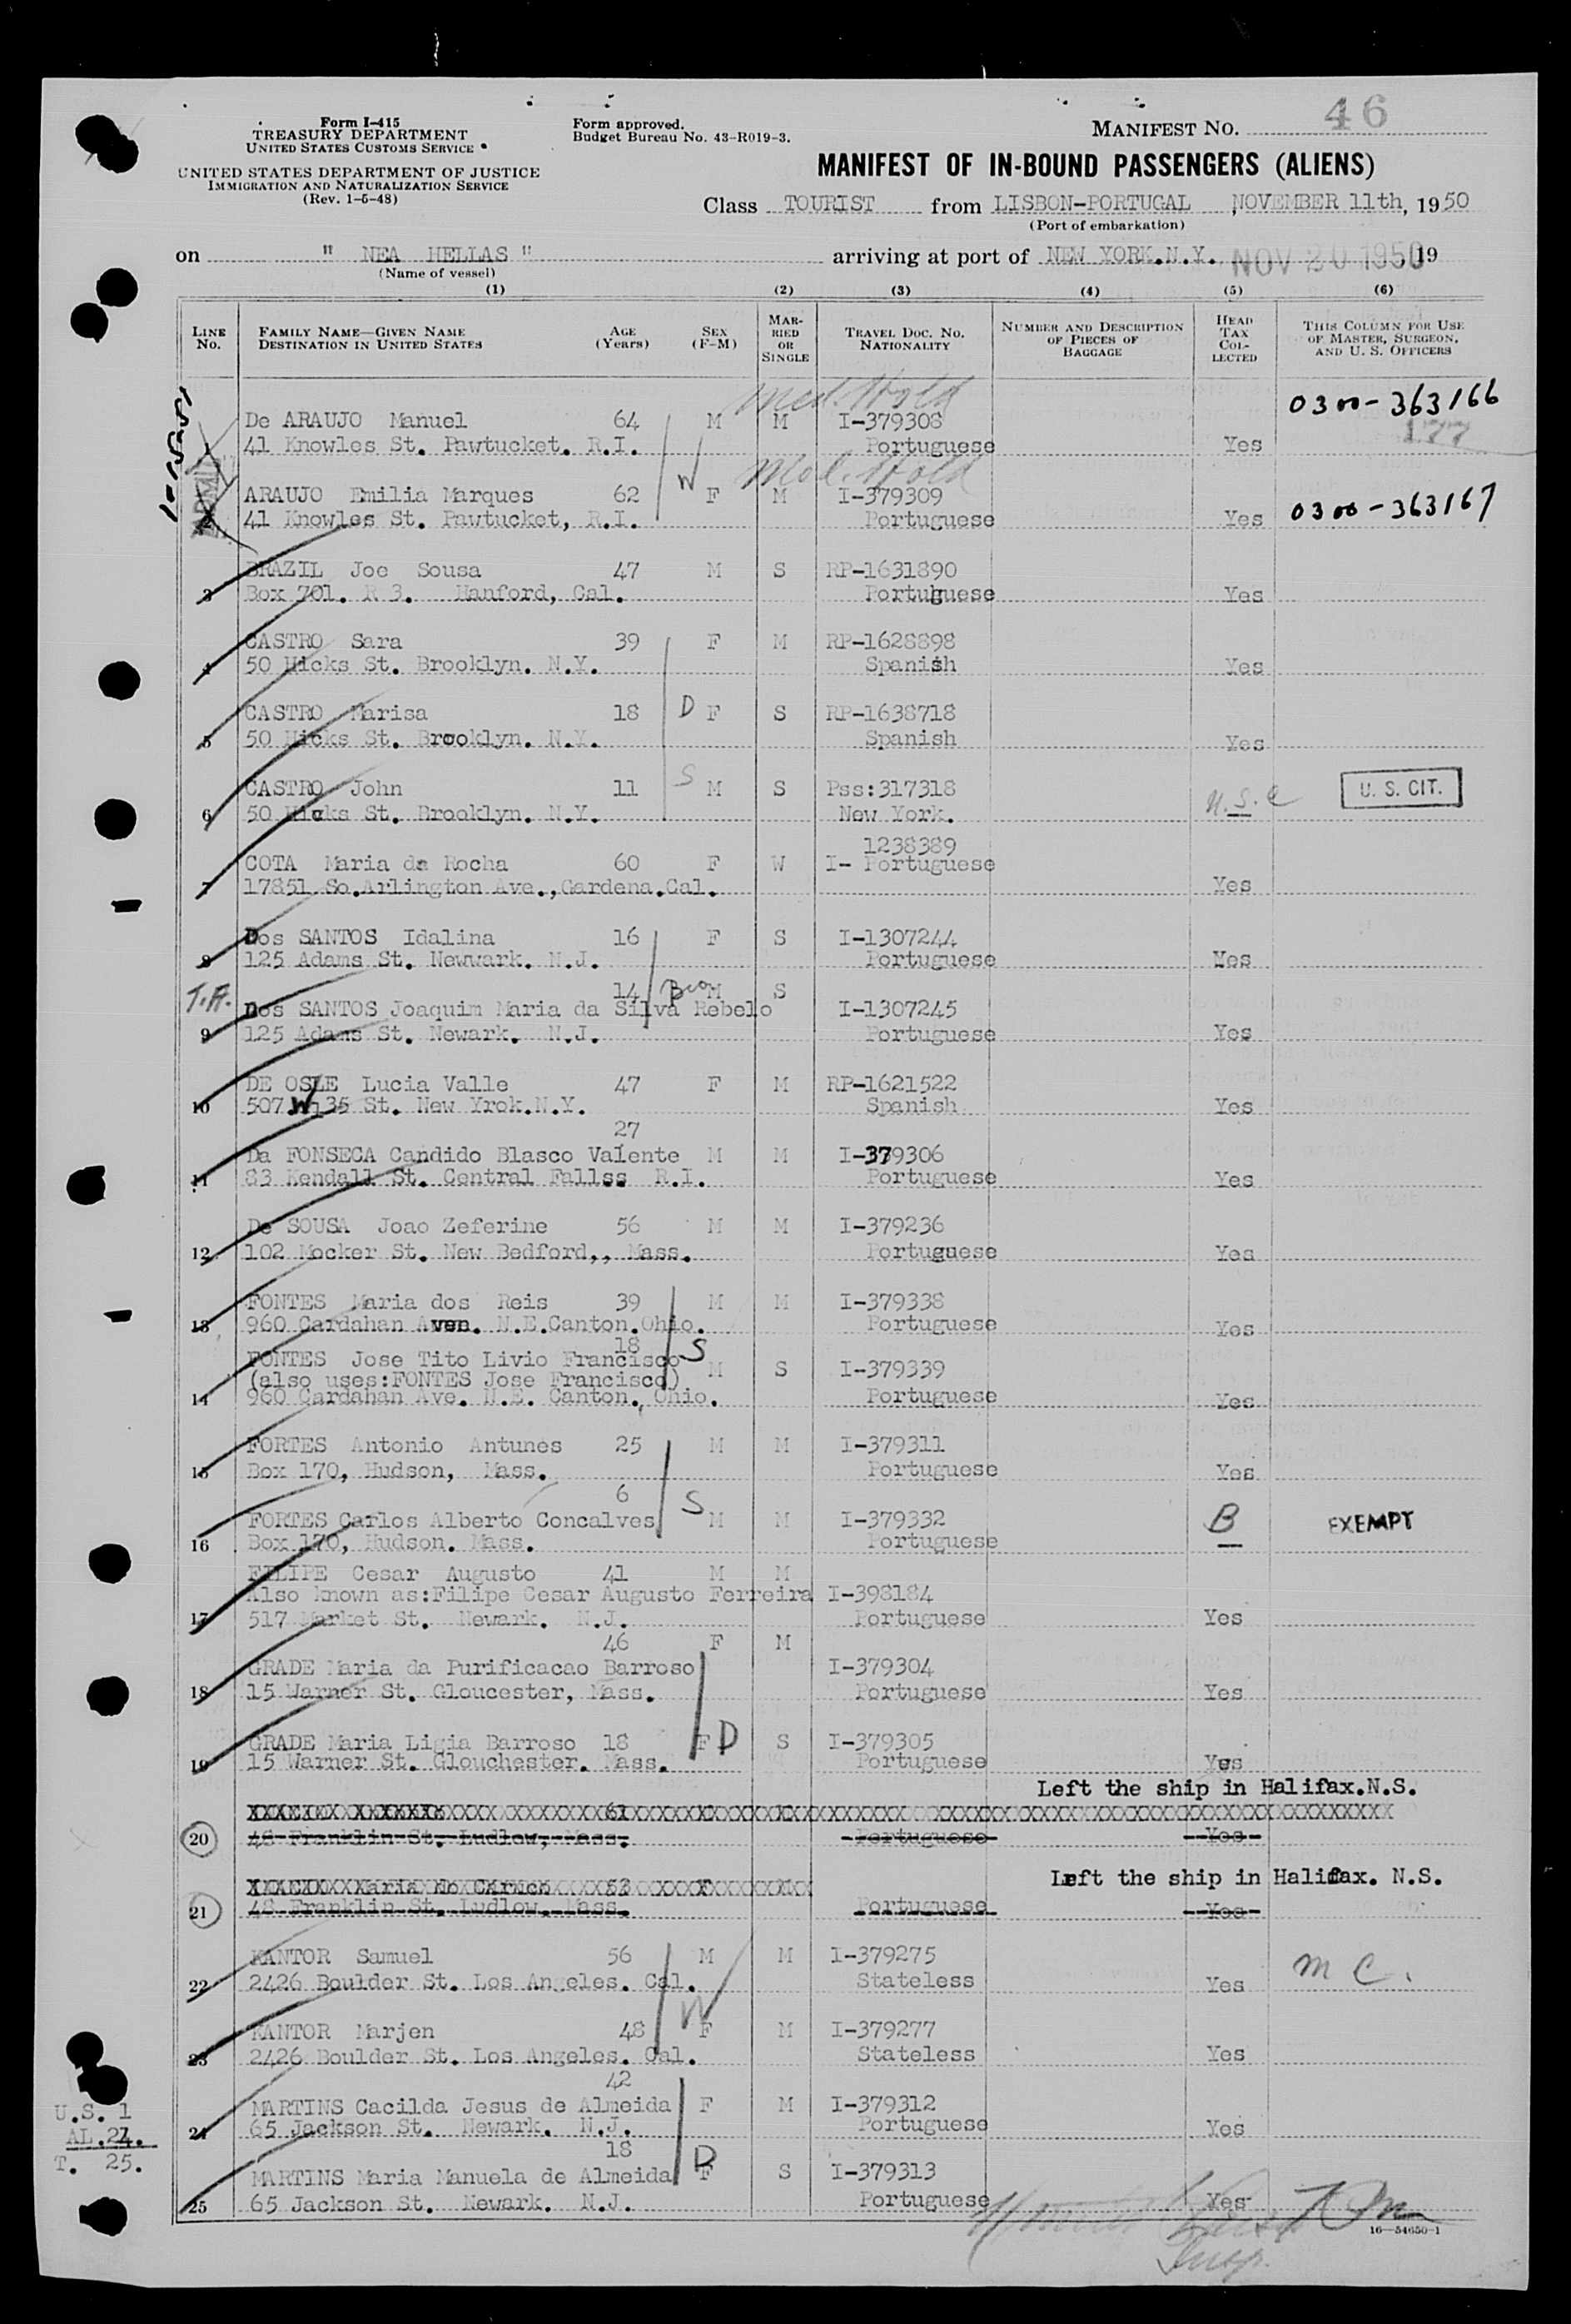 Form I-415
TREASURY DEPARTMENT
UNITED STATES CUSTOMS SERVICE
UNITED STATES DEPARTMENT OF JUSTICE
IMMIGRATION AND NATURALIZATION SERVICE
(Rev. 1-5-48)
Form approved.
Budget Bureau No. 43-R019-3.
MANIFEST NO. 46
MANIFEST OF IN-BOUND PASSENGERS (ALIENS)
Class TOURIST from LISBON-PORTUGAL , NOVEMBER 11th, 1950
(Port of embarkation)
on " NEA HELLAS " arriving at port of NEW YORK.N.Y. NOV 20 1950, 19
(Name of vessel)
(1) (2) (3) (4) (5) (6)
LINE NO. FAMILY NAME—GIVEN NAME DESTINATION IN UNITED STATES AGE (Years) SEX (F-M) MARRIED OR SINGLE TRAVEL DOC. NO. NATIONALITY NUMBER AND DESCRIPTION OF PIECES OF BAGGAGE HEAD TAX COLLECTED THIS COLUMN FOR USE OF MASTER, SURGEON, AND U. S. OFFICERS
Med. Hold
De ARAUJO Manuel 64 M M I-379308 0300-363166
41 Knowles St. Pawtucket. R.I. Portuguese Yes 177
W
Med. Hold
ARAUJO Emilia Marques 62 F M I-379309
2 41 Knowles St. Pawtucket, R.I. Portuguese Yes 0300-363167
BRAZIL Joe Sousa 47 M S RP-1631890
3 Box 701. R 3. Hanford, Cal. Portuguese Yes
CASTRO Sara 39 F M RP-1628898
4 50 Hicks St. Brooklyn. N.Y. Spanish Yes
CASTRO Marisa 18 D F S RP-1638718
5 50 Hicks St. Brooklyn. N.Y. Spanish Yes
CASTRO John 11 S M S Pss:317318 U.S.C U. S. CIT.
6 50 Hicks St. Brooklyn. N.Y. New York.
1238389
COTA Maria da Rocha 60 F W I- Portuguese
7 17851 So.Arlington Ave.,Gardena.Cal. Yes
Dos SANTOS Idalina 16 F S I-1307244
8 125 Adams St. Newwark. N.J. Portuguese Yes
T.A. 14 Bro M S
Dos SANTOS Joaquim Maria da Silva Rebelo I-1307245
9 125 Adams St. Newark. N.J. Portuguese Yes
DE OSLE Lucia Valle 47 F M RP-1621522
10 507 W 135 St. New Yrok.N.Y. Spanish Yes
27
Da FONSECA Candido Blasco Valente M M I-379306
11 83 Kendall St. Central Fallss R.I. Portuguese Yes
De SOUSA Joao Zeferine 56 M M I-379236
12 102 Mocker St. New Bedford,, Mass. Portuguese Yes
FONTES Maria dos Reis 39 M M I-379338
13 960 Cardahan Aven. N.E.Canton.Ohio. Portuguese Yes
18 S
FONTES Jose Tito Livio Francisco M S I-379339
(also uses:FONTES Jose Francisco)
14 960 Cardahan Ave. N.E. Canton., Ohio. Portuguese Yes
FORTES Antonio Antunes 25 M M I-379311
15 Box 170, Hudson, Mass. Portuguese Yes
6 S
FORTES Carlos Alberto Concalves M M I-379332 B EXEMPT
16 Box 170, Hudson. Mass. Portuguese
FILIPE Cesar Augusto 41 M M
Also known as:Filipe Cesar Augusto Ferreira I-398184
17 517 Market St. Newark. N.J. Portuguese Yes
46 F M
GRADE Maria da Purificacao Barroso I-379304
18 15 Warner St. Gloucester, Mass. Portuguese Yes
GRADE Maria Ligia Barroso 18 F D S I-379305
19 15 Warner St. Glouchester. Mass. Portuguese Yes
Left the ship in Halifax.N.S.
61
20 48 Franklin St. Ludlow, Mass. Portuguese Yes
Left the ship in Halifax. N.S.
Maria do Carmo 53 F
21 48 Franklin St. Ludlow. Mass. Portuguese Yes
KANTOR Samuel 56 M M I-379275 m c.
22 2426 Boulder St. Los Angeles. Cal. Stateless Yes
W
KANTOR Marjen 48 F M I-379277
23 2426 Boulder St. Los Angeles. Cal. Stateless Yes
42
MARTINS Cacilda Jesus de Almeida F M I-379312
24 65 Jackson St. Newark. N.J. Portuguese Yes
18 D
MARTINS Maria Manuela de Almeida F S I-379313
25 65 Jackson St. Newark. N.J. Portuguese Yes
U.S. 1
AL.24.
T. 25.
Insp.
16—54650-1